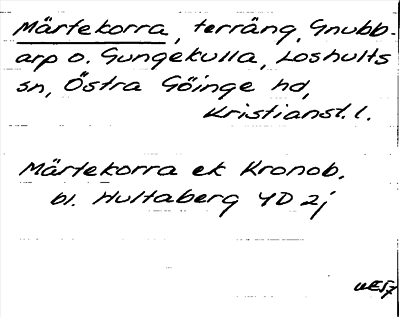 Märtekorra, terräng, Gnubb-
arp o. Gungekulla, Loshults
sn, Östra Göinge hd,
Kristianst. l.
Märtekorra ek Kronob.
bl. Hultaberg 4D 2j